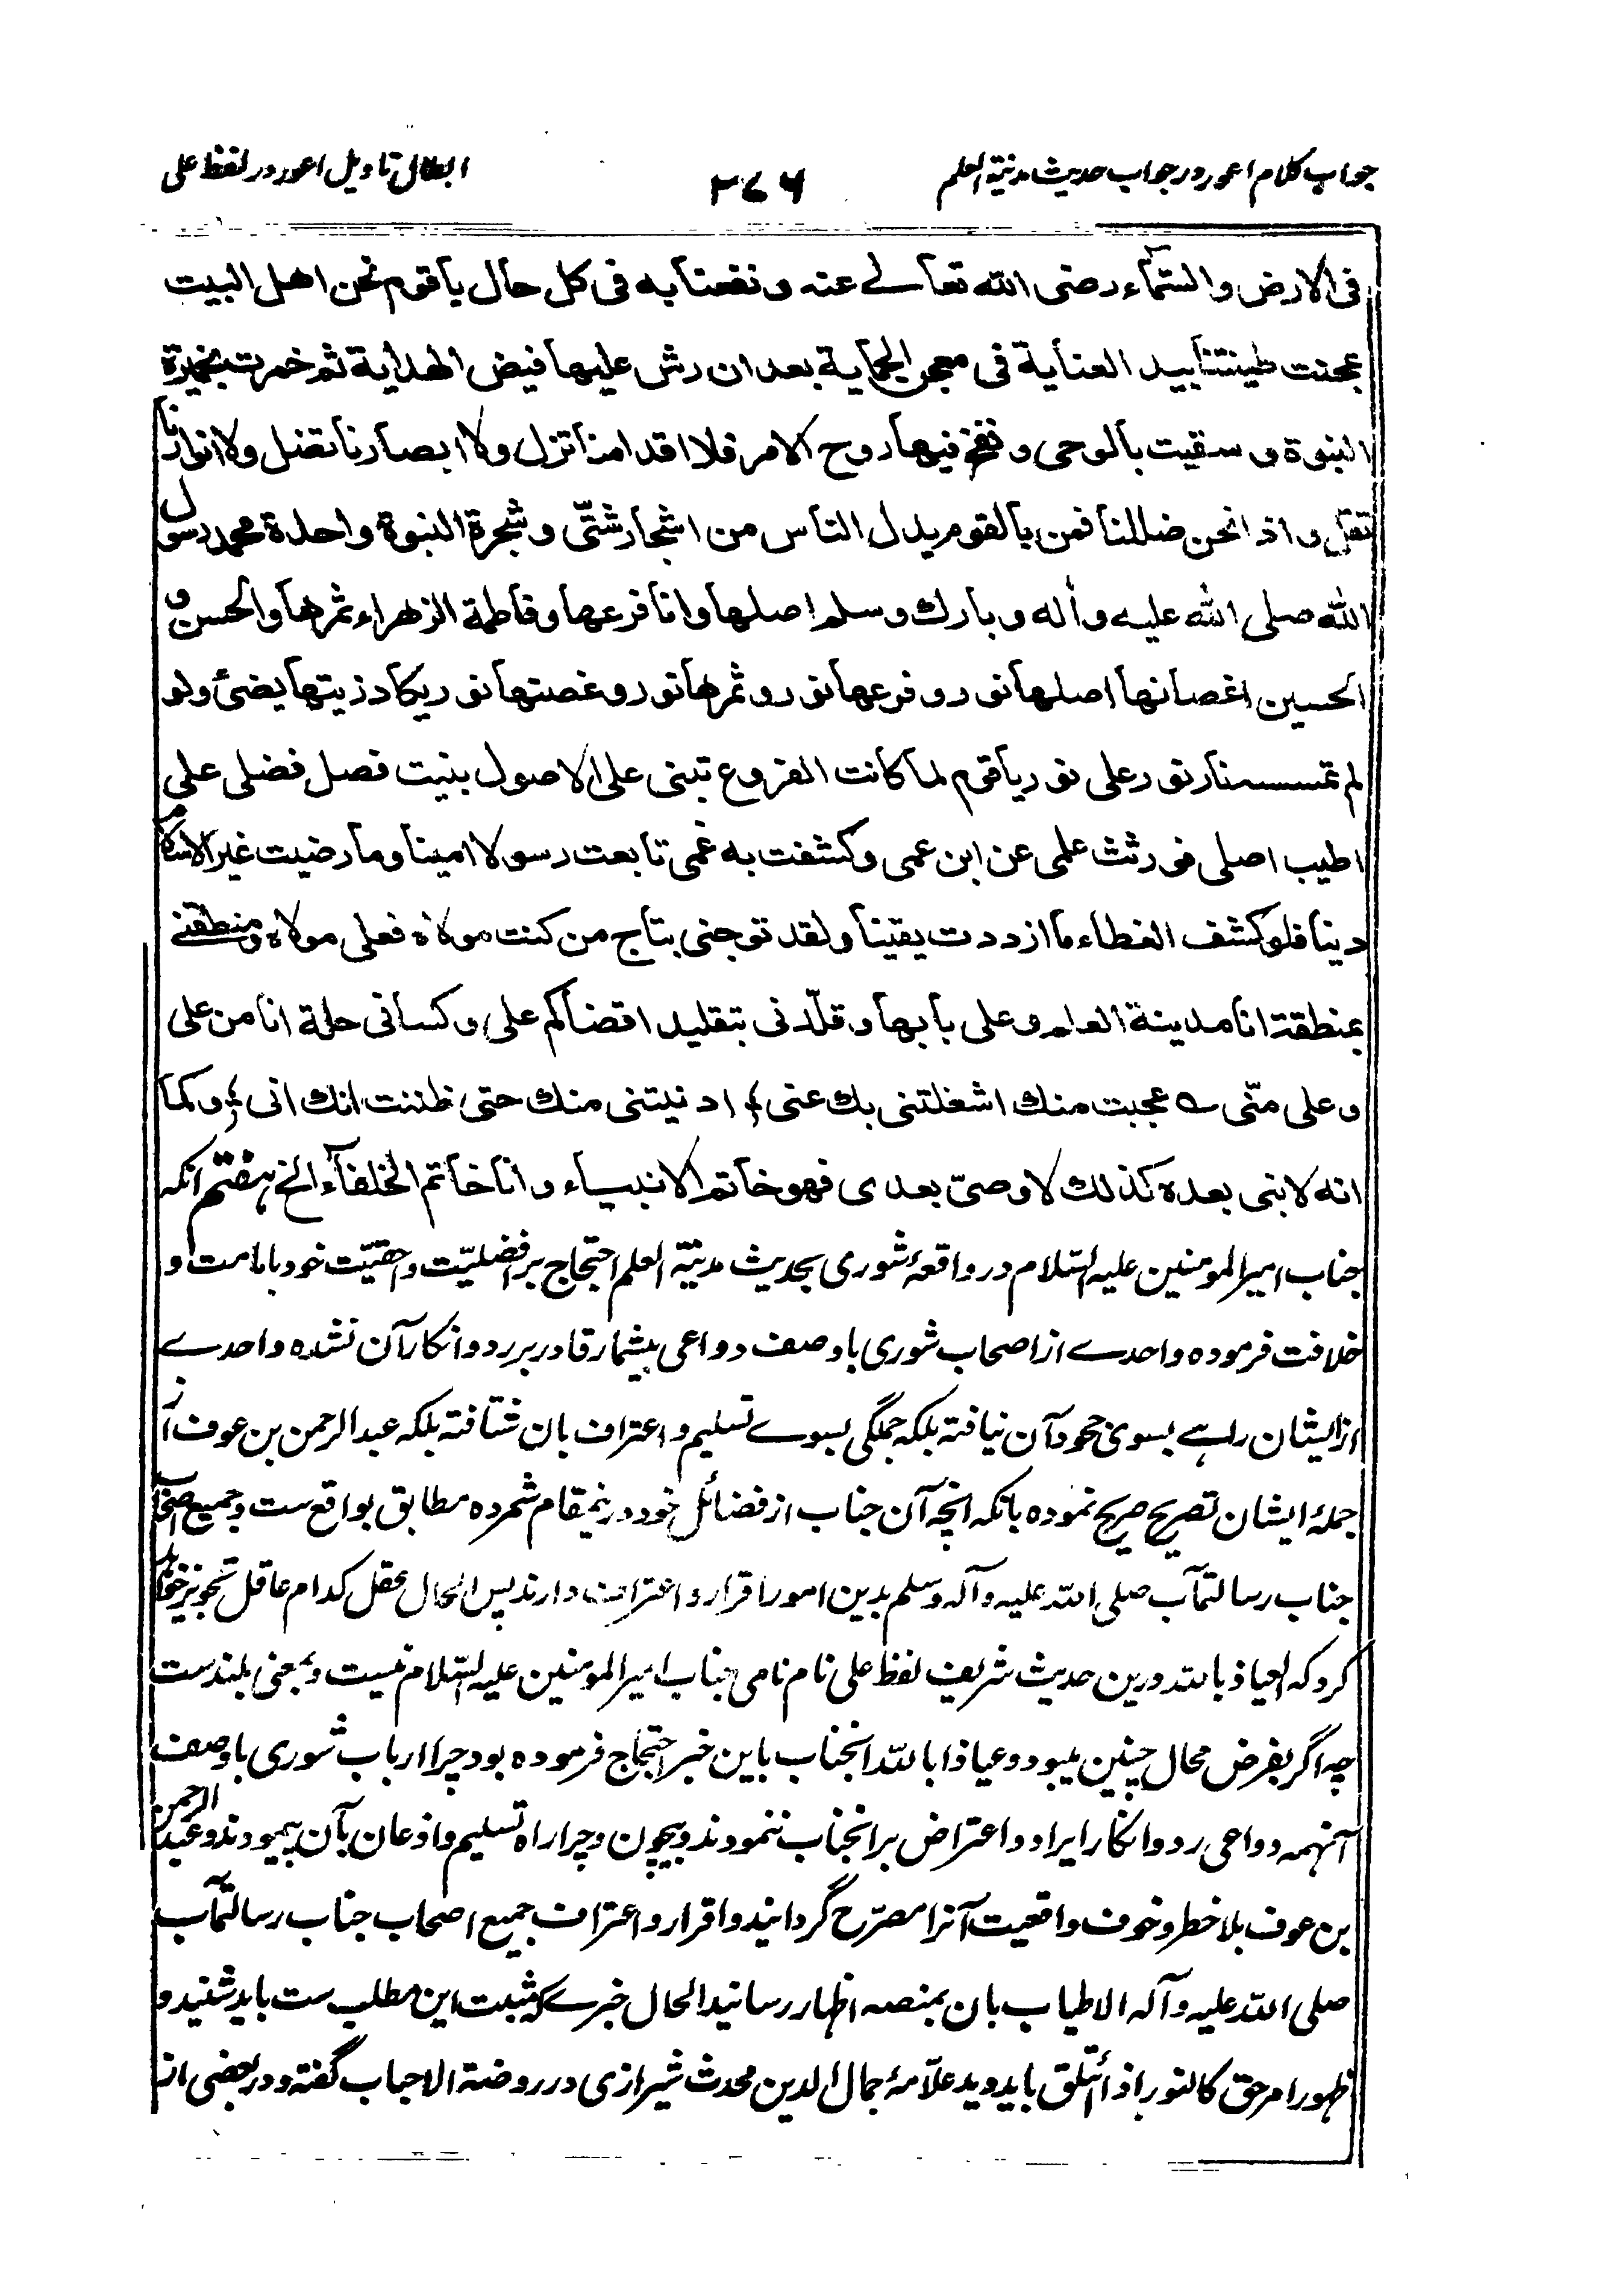 جواب کلام اعور در جواب حدیث مدینة العلم
۲۷۶
ابطال تاویل اعور در لفظ علی
فی الارض والسمآء رضی الله تعالے عنه ونفعنا به فی کل حال یا قوم نحن اهل البیت
عجنت طینتنا بید العنایة فی معجن الحمایة بعد ان رش علیها فیض الهدایة ثم خمرت بخمیرة
النبوة وسقیت بالوحی ونفخ فیها روح الامر فلا اقدامنا تزل ولا ابصارنا تضل ولا انوارنا
تقل واذا نحن ضللنا فمن بالقوم یدل الناس من اشجار شتّی وشجرة النبوة واحدة محمد رسول
الله صلی الله علیه وأله وبارك وسلم اصلها وانا فرعها وفاطمة الزهراء ثمرها والحسن و
الحسین اغصانها اصلها نور وفرعها نور وثمرها نور وغصتها نور یکاد زیتها یضئ ولو
لم تمسسه نار نور علی نور یا قوم لما کانت الفروع تبنی علی الاصول بنیت فصل فضلی علی
اطیب اصلی فورثت علمی عن ابن عمی وکشفت به غمی تابعت رسولا امینا وما رضیت غیر الاسلام
دینا فلو کشف الغطاء ما ازددت یقینا ولقد توجنی بتاج من کنت مولاه فعلی مولاه ومنطقنے
بمنطقة انا مدینة العلم وعلی بابها وقلّدنی بتقلید اقضاکم علی وکسانی حلة انا من علی
وعلی منّی ؎ عجبت منك اشغلتنی بك عنی ؛ ادنیتنی منك حتی ظننت انك انی ؛ وکما
انه لا نبی بعده کذلك لا وصیّ بعدی فهو خاتم الانبیاء وانا خاتم الخلفآء الخ هفتم آنکه
جناب امیر المومنین علیه السّلام در واقعهٔ شوری بحدیث مدینة العلم احتجاج بر افضلیّت و احقیّت خود بامامت و
خلافت فرموده واحدے از اصحاب شوری باوصف دواعی بیشمار قادر بر رد و انکار آن نشده واحدے
از ایشان راہے بسوی جحود آن نیافته بلکه جملگی بسوے تسلیم و اعتراف بان شتافته بلکه عبد الرحمن بن عوف از
جملهٔ ایشان تصریح صریح نموده بانکه انچه آن جناب از فضائل خود درینمقام شمرده مطابق بواقع ست وجمیع اصحاب
جناب رسالتمآب صلی الله علیه وآله وسلم بدین امور اقرار و اعتراف دارند پس الحال عقل کدام عاقل تجویز خواهد
کرد که العیاذ بالله درین حدیث شریف لفظ علی نام نامی جناب امیر المومنین علیه السّلام نیست وبمعنی بلندست
چه اگر بفرض محال چنین میبود وعیاذا بالله انجناب باین خبر احتجاج فرموده بود چرا ارباب شوری باوصف
آنهمه دواعی رد و انکار ایراد و اعتراض بر انجناب ننمودند وبیچون وچرا راه تسلیم واذعان بآن پیمودند وعبد الرحمن
بن عوف بلا خطر وخوف واقعیت آنرا مصرّح گردانید و اقرار و اعتراف جمیع اصحاب جناب رسالتمآب
صلی الله علیه وآله الاطیاب بان بمنصه اظهار رسانید الحال خبرے که مثبت این مطلب ست باید شنید و
ظهور امر حق کالنور اذ اأتلق باید دید علّامهٔ جمال الدین محدث شیرازی در روضة الاحباب گفته ودر بعضی از